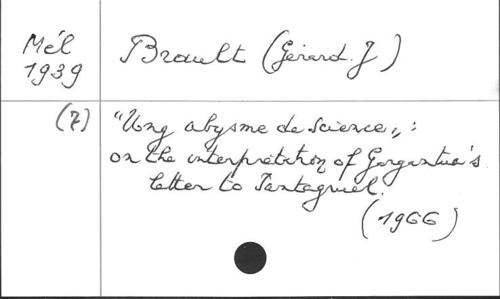 Mél
1939
Brault (Gérard. J)
(7)
"Ung abysme de science„:
on the interpretation of Gargantua's
letter to Pantagruel.
(1966)